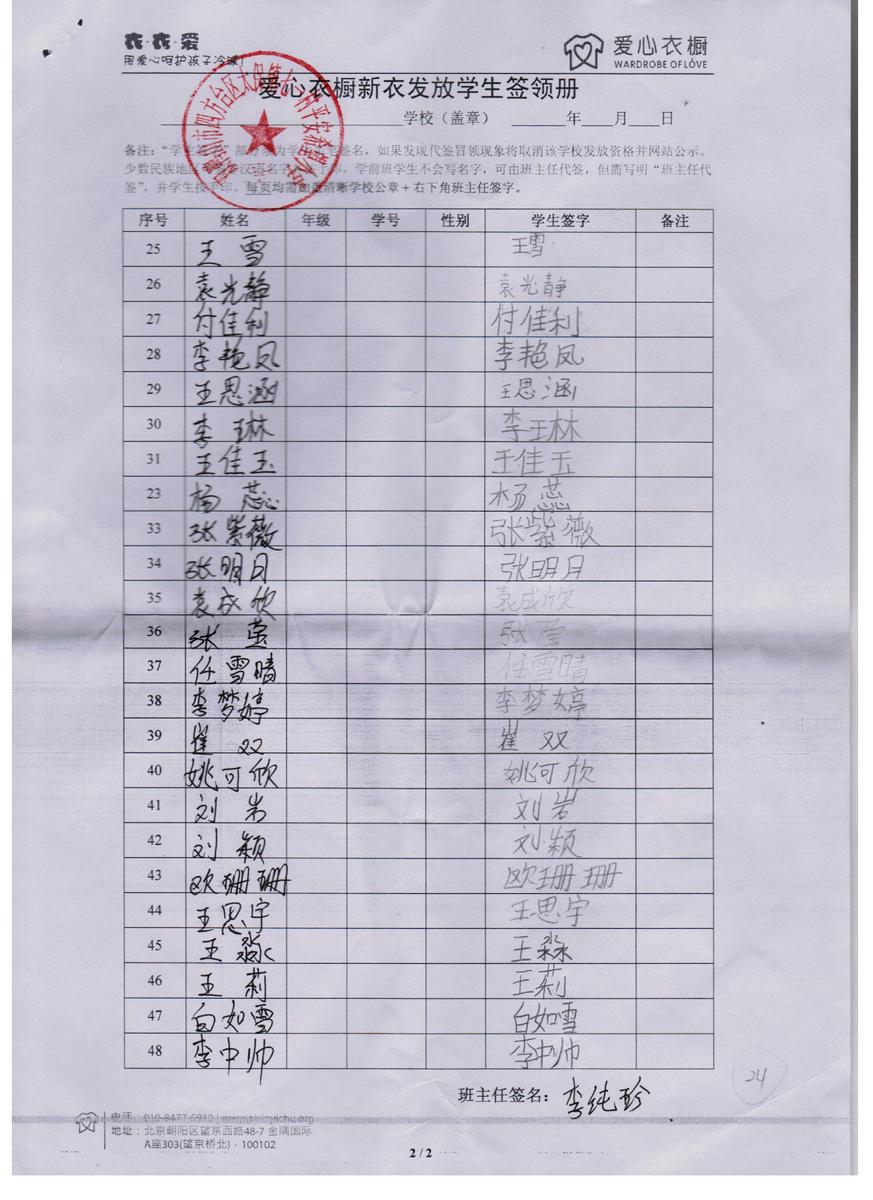 衣·衣·爱
用爱心呵护孩子冷暖!
爱心衣橱
WARDROBE OF LOVE
爱心衣橱新衣发放学生签领册
学校（盖章） 年 月 日
备注：“学生签 如果发现代签冒领现象将取消该学校发放资格并网站公示。
少数民族地 学前班学生不会写名字，可由班主任代签，但需写明“班主任代
签”，并学生按手印。每页均需加盖清晰学校公章+右下角班主任签字。
序号 姓名 年级 学号 性别 学生签字 备注
25 王雪 王雪
26 袁光静 袁光静
27 付佳利 付佳利
28 李艳凤 李艳凤
29 王思涵 王思涵
30 李琳 李琳
31 王佳玉 王佳玉
23 杨蕊 杨蕊
33 张紫薇 张紫薇
34 张明月 张明月
35 袁成欣 袁成欣
36 张莹 张莹
37 任雪晴 任雪晴
38 李梦婷 李梦婷
39 崔双 崔双
40 姚可欣 姚可欣
41 刘岩 刘岩
42 刘颖 刘颖
43 欧珊珊 欧珊珊
44 王思宇 王思宇
45 王淼 王淼
46 王莉 王莉
47 白如雪 白如雪
48 李中帅 李中帅
班主任签名：李纯珍
24
电话：010-8477-6910
地址：北京朝阳区望京西路48-7 金隅国际
A座303(望京桥北)·100102
2 / 2